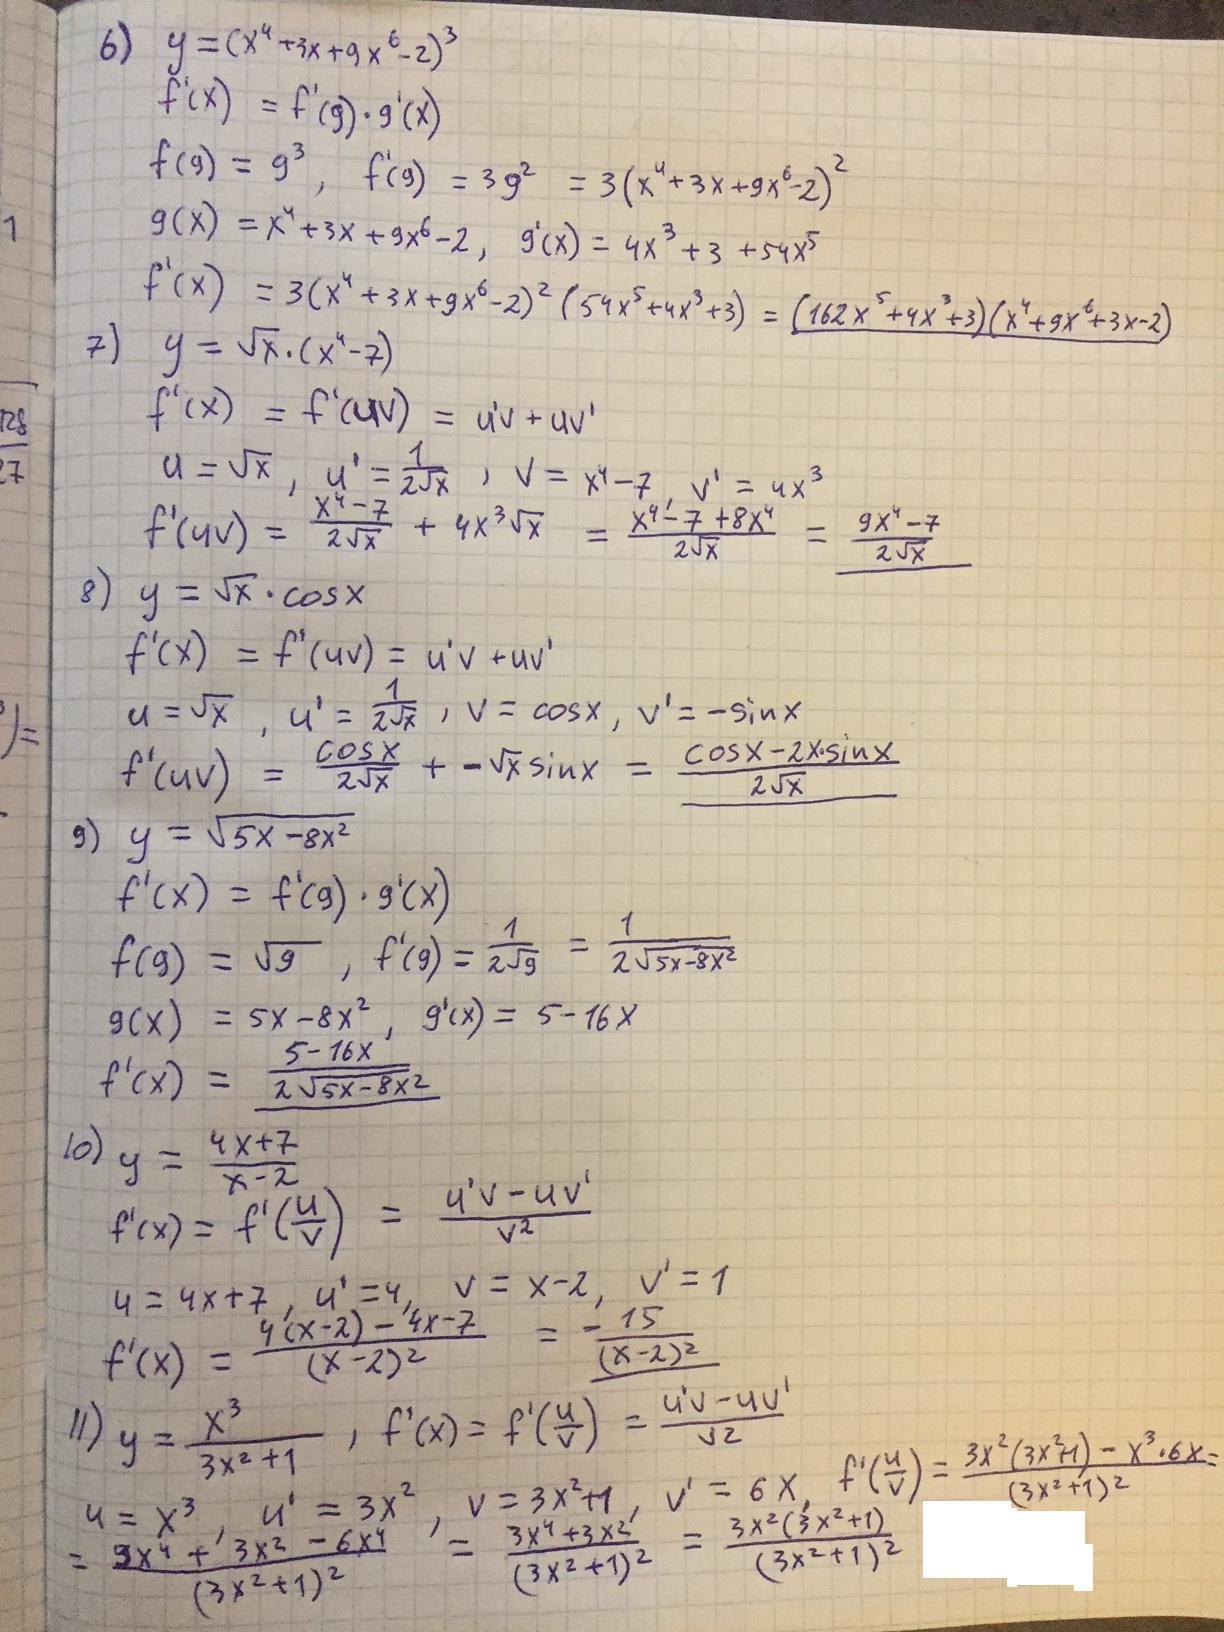 6) y = (x⁴+3x+9x⁶-2)³
f'(x) = f'(g)·g'(x)
1
f(g) = g³, f'(g) = 3g² = 3(x⁴+3x+9x⁶-2)²
g(x) = x⁴+3x+9x⁶-2, g'(x) = 4x³+3+54x⁵
f'(x) = 3(x⁴+3x+9x⁶-2)²(54x⁵+4x³+3) = (162x⁵+4x³+3)(x⁴+9x⁶+3x-2)
7) y = √x·(x⁴-7)
f'(x) = f'(uv) = u'v+uv'
27
u = √x, u' = 1/(2√x), v = x⁴-7, v' = 4x³
f'(uv) = (x⁴-7)/(2√x) + 4x³√x = (x⁴-7+8x⁴)/(2√x) = (9x⁴-7)/(2√x)
8) y = √x·cosx
f'(x) = f'(uv) = u'v+uv'
)=
u = √x, u' = 1/(2√x), v = cosx, v' = -sinx
f'(uv) = cosx/(2√x) + -√x sinx = (cosx-2x·sinx)/(2√x)
9) y = √(5x-8x²)
f'(x) = f'(g)·g'(x)
f(g) = √g, f'(g) = 1/(2√g) = 1/(2√(5x-8x²))
g(x) = 5x-8x², g'(x) = 5-16x
f'(x) = (5-16x)/(2√(5x-8x²))
10) y = (4x+7)/(x-2)
f'(x) = f'(u/v) = (u'v-uv')/v²
u = 4x+7, u' = 4, v = x-2, v' = 1
f'(x) = (4(x-2)-4x-7)/(x-2)² = -15/(x-2)²
11) y = x³/(3x²+1), f'(x) = f'(u/v) = (u'v-uv')/v²
u = x³, u' = 3x², v = 3x²+1, v' = 6x, f'(u/v) = (3x²(3x²+1)-x³·6x)/(3x²+1)² =
= (9x⁴+3x²-6x⁴)/(3x²+1)² = (3x⁴+3x²)/(3x²+1)² = (3x²(3x²+1))/(3x²+1)²